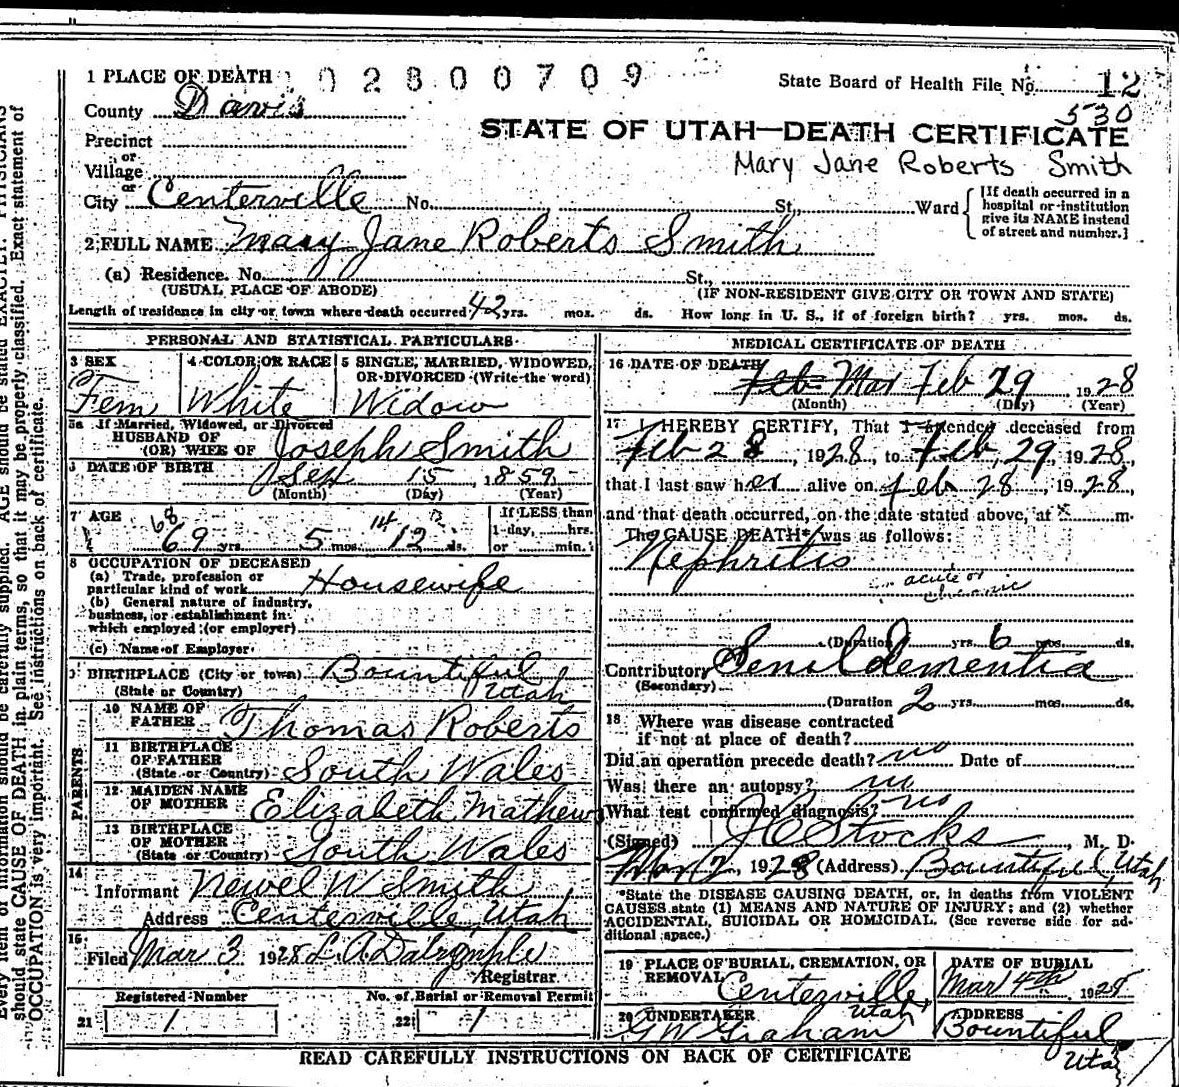 1 PLACE OF DEATH 02800709 State Board of Health File No. 12
County Davis 530
STATE OF UTAH—DEATH CERTIFICATE
Precinct
or
Village
Mary Jane Roberts Smith
or
City Centerville No. St., Ward
[If death occurred in a
hospital or institution
give its NAME instead
of street and number.]
2 FULL NAME Mary Jane Roberts Smith
(a) Residence. No. St.,
(USUAL PLACE OF ABODE) (IF NON-RESIDENT GIVE CITY OR TOWN AND STATE)
Length of residence in city or town where death occurred 42 yrs. mos. ds. How long in U. S., if of foreign birth? yrs. mos. ds.
PERSONAL AND STATISTICAL PARTICULARS
3 SEX 4 COLOR OR RACE 5 SINGLE, MARRIED, WIDOWED,
OR DIVORCED (Write the word)
Fem White Widow
5a If Married, Widowed, or Divorced
HUSBAND OF
(OR) WIFE OF Joseph Smith
DATE OF BIRTH Sep 15, 1859
(Month) (Day) (Year)
7 AGE If LESS than
68 14 1 day, hrs.
69 yrs. 5 mos. 12 ds. or min.
8 OCCUPATION OF DECEASED
(a) Trade, profession or
particular kind of work Housewife
(b) General nature of industry,
business, or establishment in
which employed (or employer)
(c) Name of Employer
9 BIRTHPLACE (City or town) Bountiful
(State or Country) Utah
PARENTS
10 NAME OF
FATHER Thomas Roberts
11 BIRTHPLACE
OF FATHER
(State or Country) South Wales
12 MAIDEN NAME
OF MOTHER Elizabeth Mathews
13 BIRTHPLACE
OF MOTHER
(State or Country) South Wales
14
Informant Newel W Smith
Address Centerville Utah
15
Filed Mar 3 1928 L. A. Dalrymple
Registrar
Registered Number No. of Burial or Removal Permit
21 1 22 1
MEDICAL CERTIFICATE OF DEATH
16 DATE OF DEATH Feb Mar Feb 29 1928
(Month) (Day) (Year)
17 I HEREBY CERTIFY, That I attended deceased from
Feb 28, 1928, to Feb, 29, 1928,
that I last saw her alive on feb 28, 1928,
and that death occurred, on the date stated above, at m.
The CAUSE DEATH* was as follows:
Nephritis
acute or
chronic
(Duration) yrs. 6 mos. ds.
Contributory Senil dementia
(Secondary)
(Duration 2 yrs. mos. ds.
18 Where was disease contracted
if not at place of death?
Did an operation precede death? no Date of
Was there an autopsy? no
What test confirmed diagnosis? no
(Signed) J C Stocks, M. D.
Mar 2, 1928 (Address) Bountiful, Utah
*State the DISEASE CAUSING DEATH, or, in deaths from VIOLENT
CAUSES state (1) MEANS AND NATURE OF INJURY; and (2) whether
ACCIDENTAL, SUICIDAL OR HOMICIDAL. (See reverse side for ad-
ditional space.)
19 PLACE OF BURIAL, CREMATION, OR
REMOVAL Centerville, Utah
DATE OF BURIAL
Mar 4th 1928
20 UNDERTAKER
G W Graham
ADDRESS
Bountiful Utah
READ CAREFULLY INSTRUCTIONS ON BACK OF CERTIFICATE
Every item of information should be carefully supplied. AGE should be stated EXACTLY. PHYSICIANS
should state CAUSE OF DEATH in plain terms, so that it may be properly classified. Exact statement of
OCCUPATION is very important. See instructions on back of certificate.